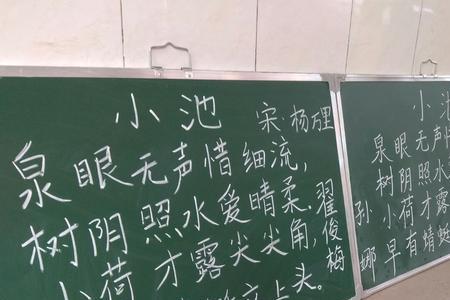 小池 宋·杨万里
泉眼无声惜细流,
树阴照水爱晴柔.
小荷才露尖尖角,
立上头.
翟俊梅
小池
泉眼无声
树阴照水
小荷才露
早有蜻
孙娜